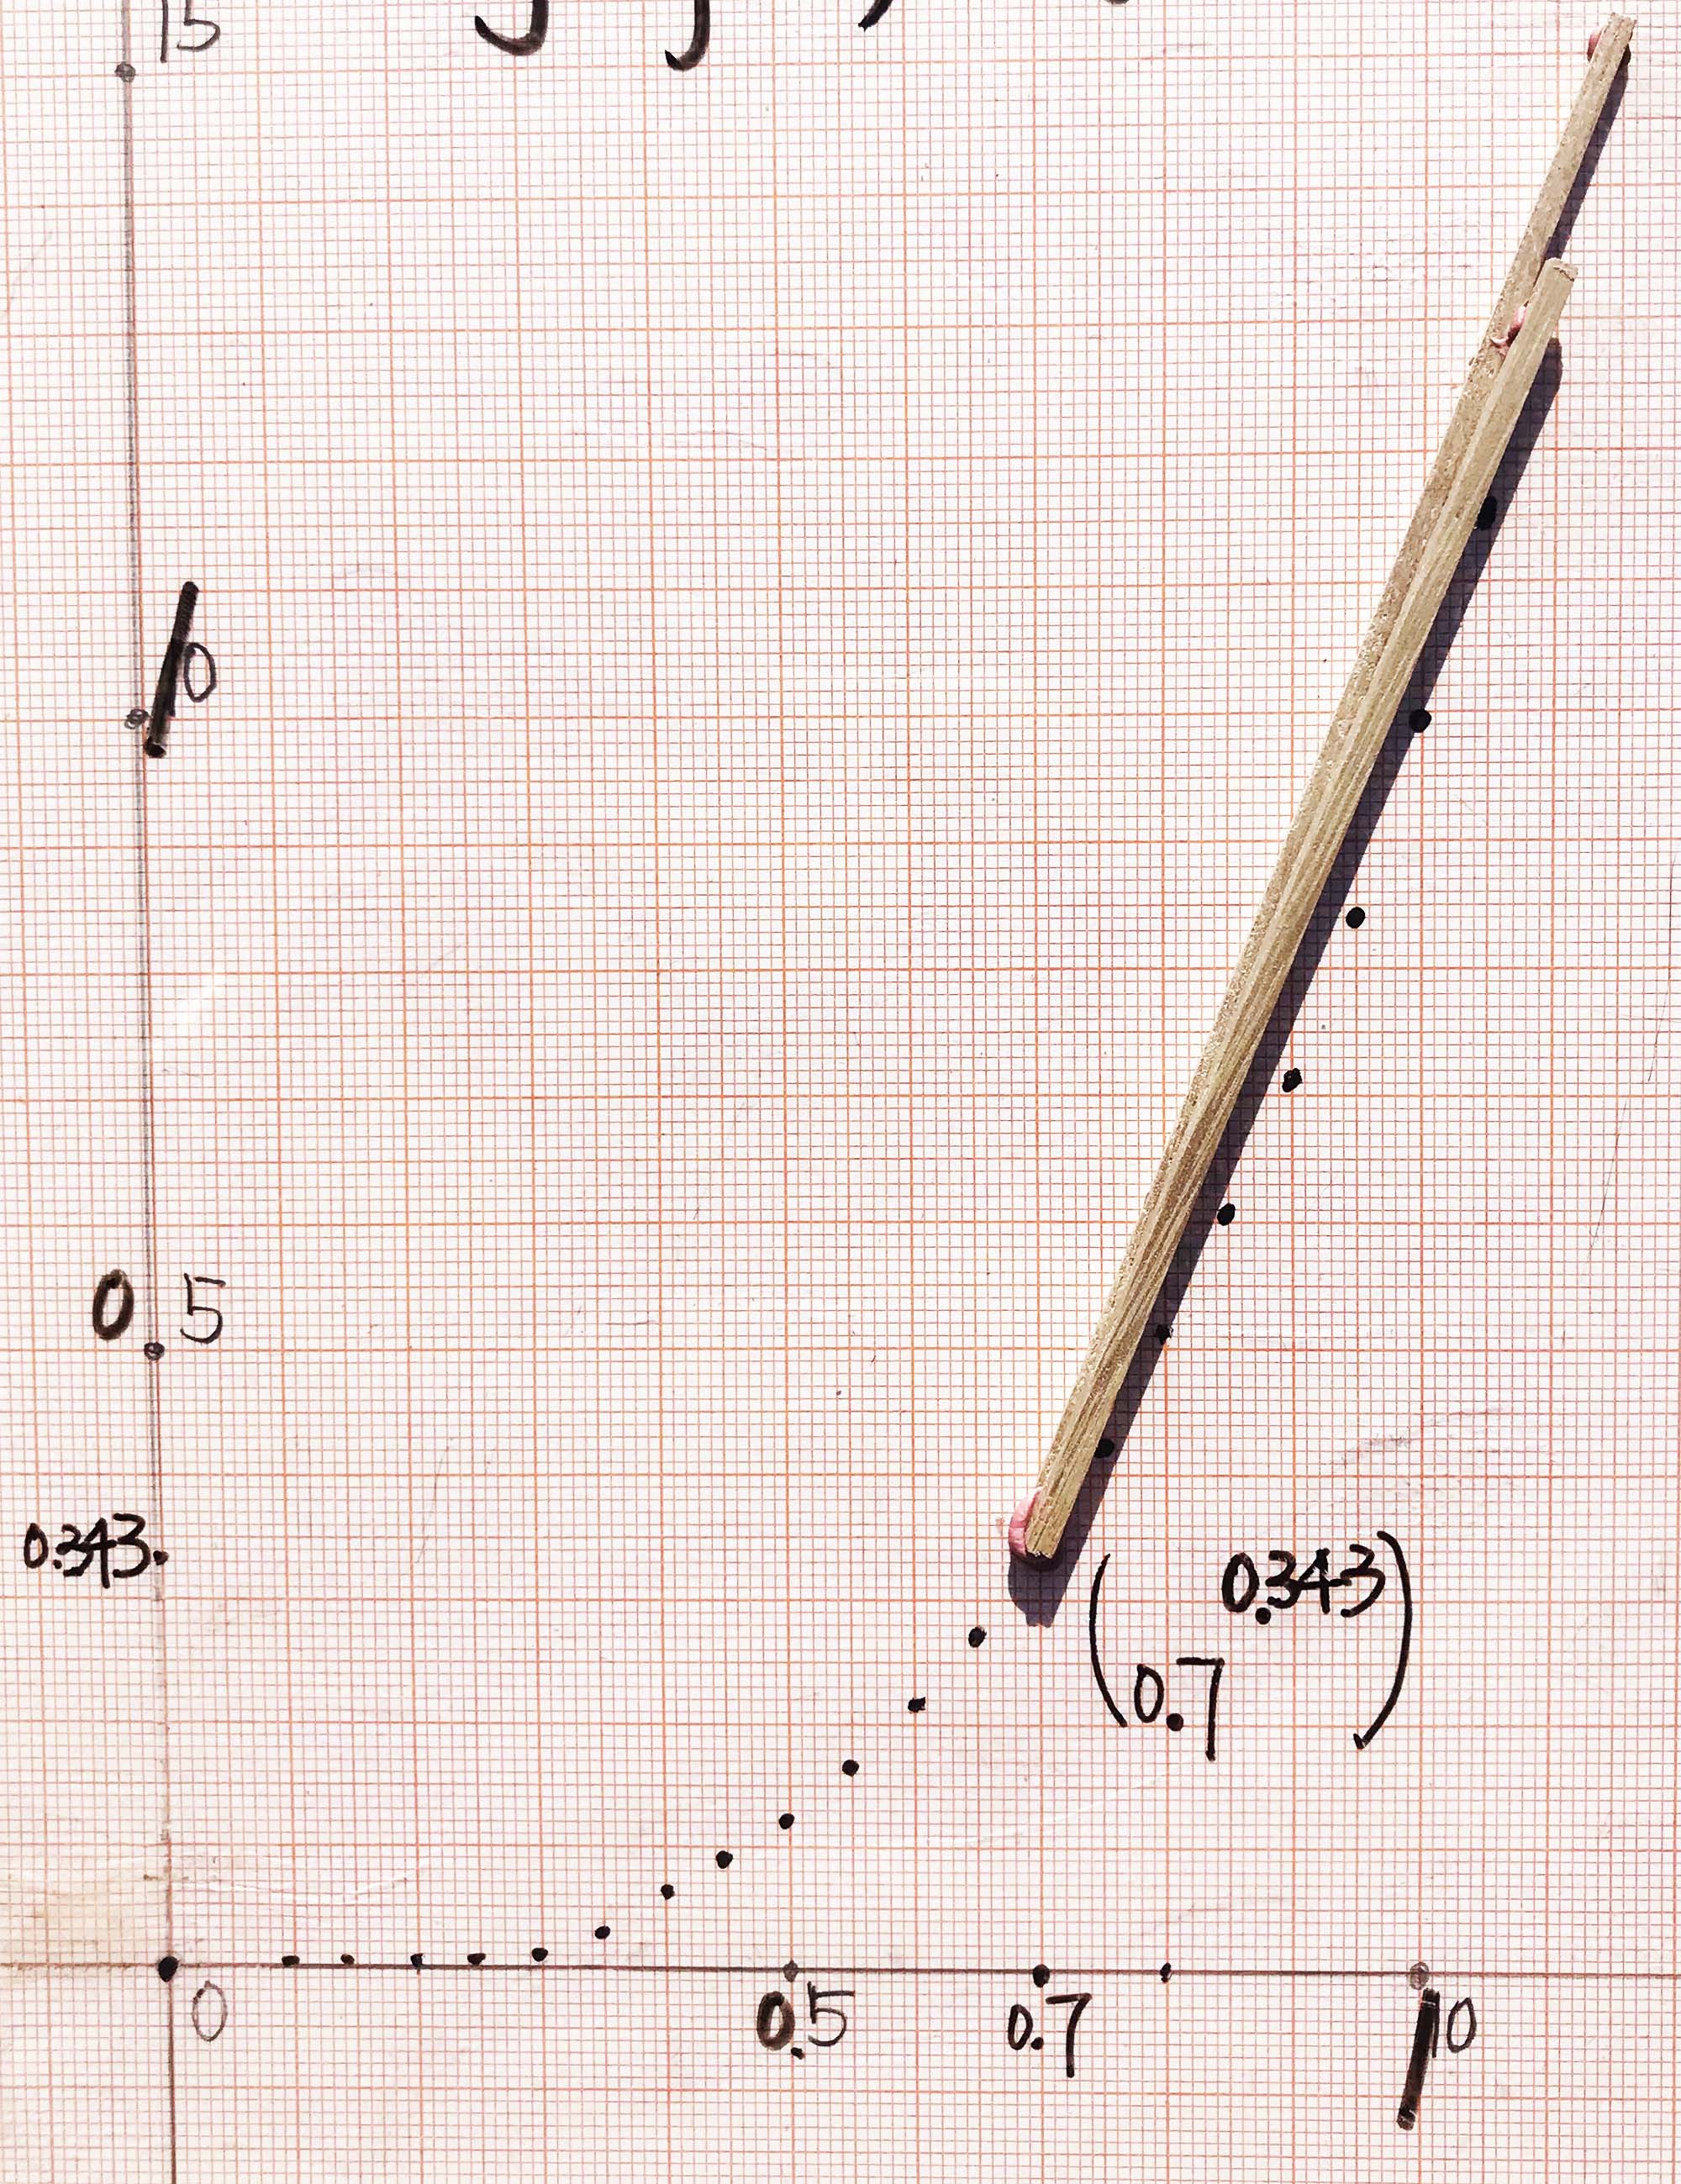 15
10
0.5
0.343
(0.7 0.343)
0
0.5
0.7
10